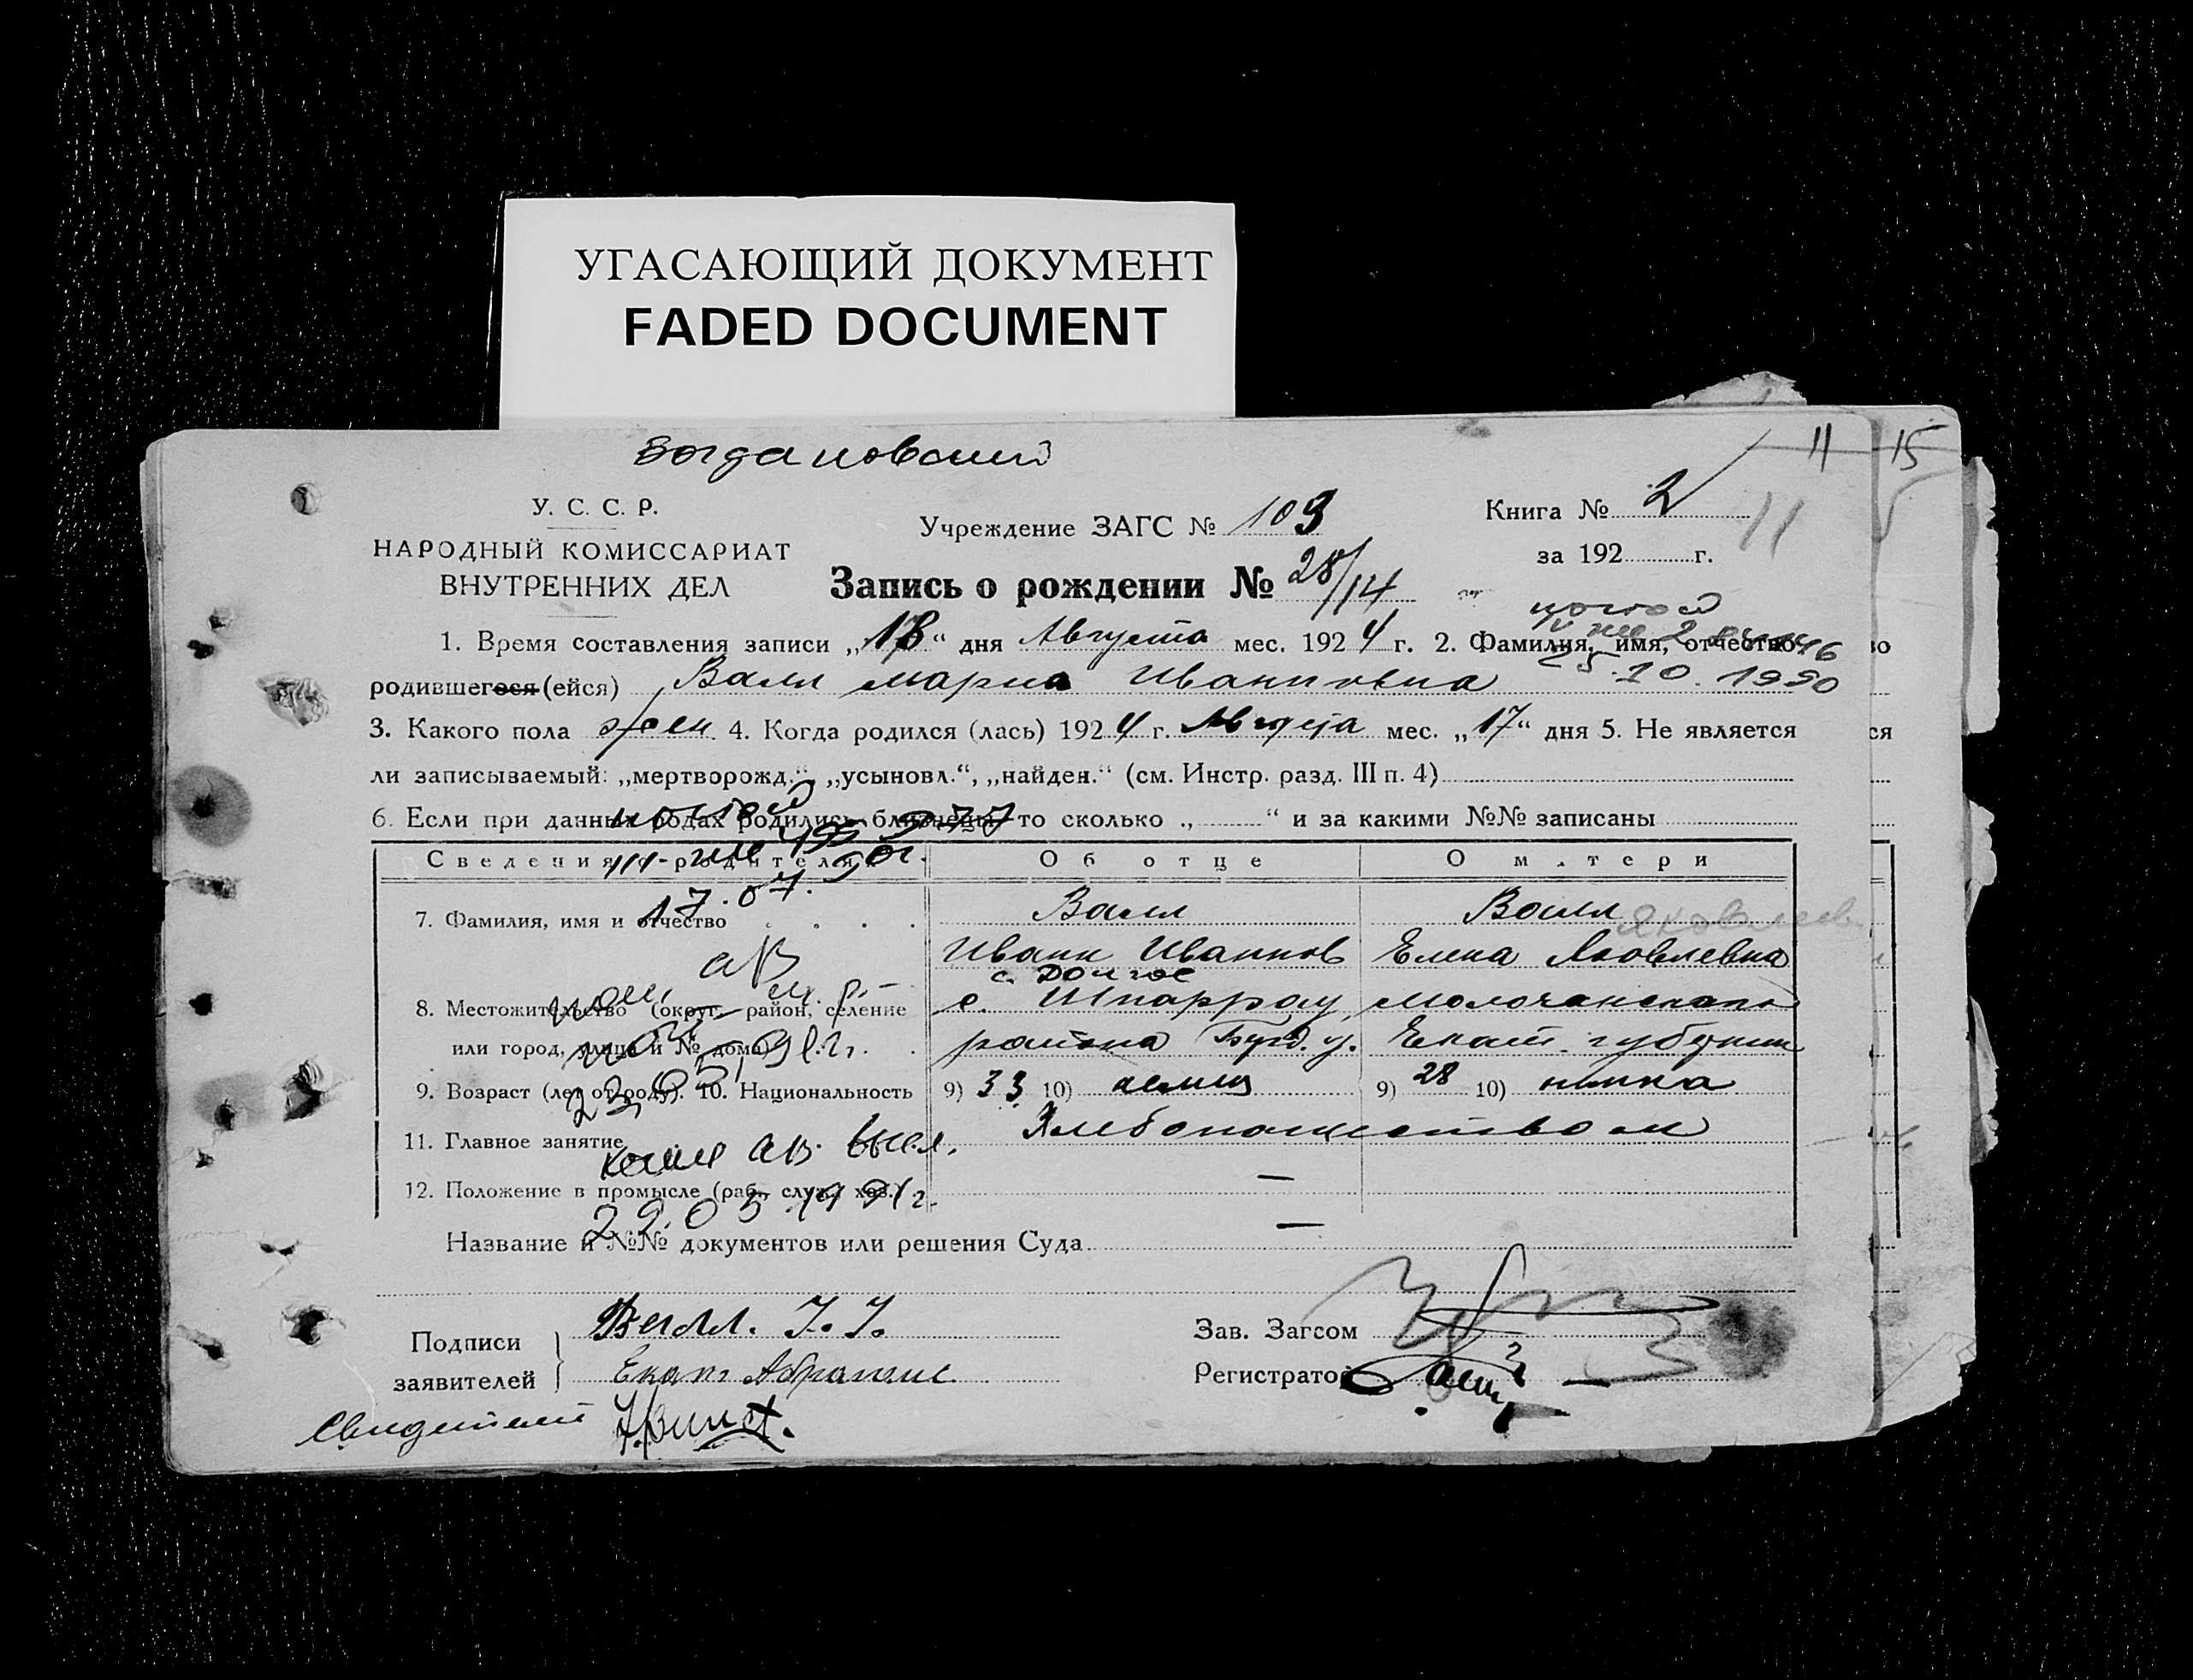 УГАСАЮЩИЙ ДОКУМЕНТ
FADED DOCUMENT
Богдановский
11 15
У. С. С. Р.
НАРОДНЫЙ КОМИССАРИАТ
ВНУТРЕННИХ ДЕЛ
Учреждение ЗАГС № 103
Книга № 2
11
за 192 г.
Запись о рождении № 28/14
1. Время составления записи „18“ дня Августа мес. 1924 г. 2. Фамилия, имя, отчество
25.10.1990
родившегося (ейся) Валл Мария Ивановна
3. Какого пола жен. 4. Когда родился (лась) 1924 г. Августа мес. „17“ дня 5. Не является
ли записываемый: „мертворожд.“ „усыновл.“, „найден.“ (см. Инстр. разд. III п. 4)
6. Если при данных родах родились близнецы, то сколько „ “ и за какими №№ записаны
Сведения о родителях Об отце О матери
17.07.90г.
7. Фамилия, имя и отчество Валл Валл
Иванн Иваннов Елена Яковлевна
с. Долгое
8. Местожительство (округ, район, селение с. Шпаррау, Молочанского
или город, улица и № дома) района Екат. губернии
9. Возраст (лет от роду). 10. Национальность 9) 33 10) немец 9) 28 10) немка
11. Главное занятие Хлебопашеством
копия ав. высл.
12. Положение в промысле (раб., служ., хоз.) —
22.05.1991г.
Название и №№ документов или решения Суда —
Подписи
заявителей
Валл. И. И.
Екат Абрагамс
Зав. Загсом
Регистратор
Свидетели